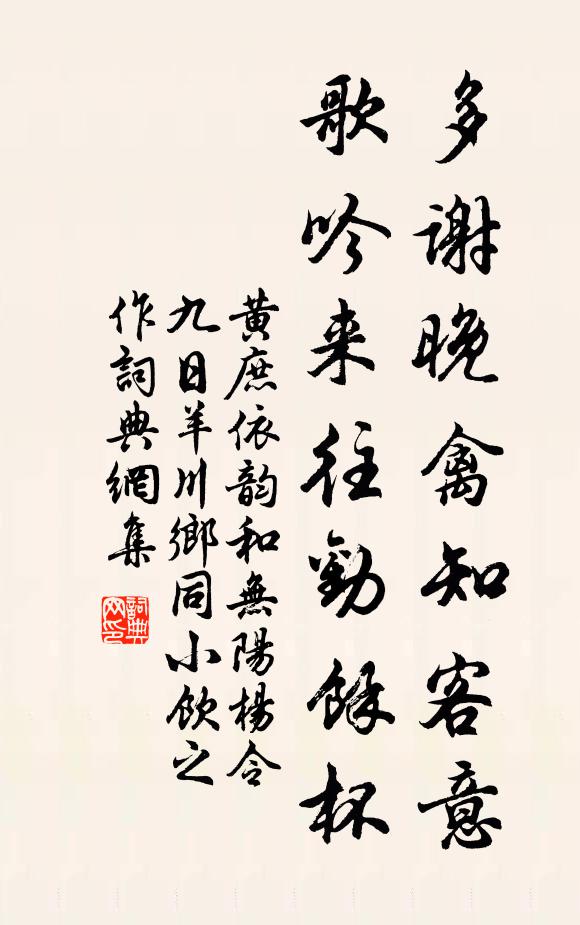 多謝晚禽知客意
歌吟来往勸餘杯
黄庶依韵和無陽楊令
九日羊川鄉同小飲之
作詞典網集
詞典
网印